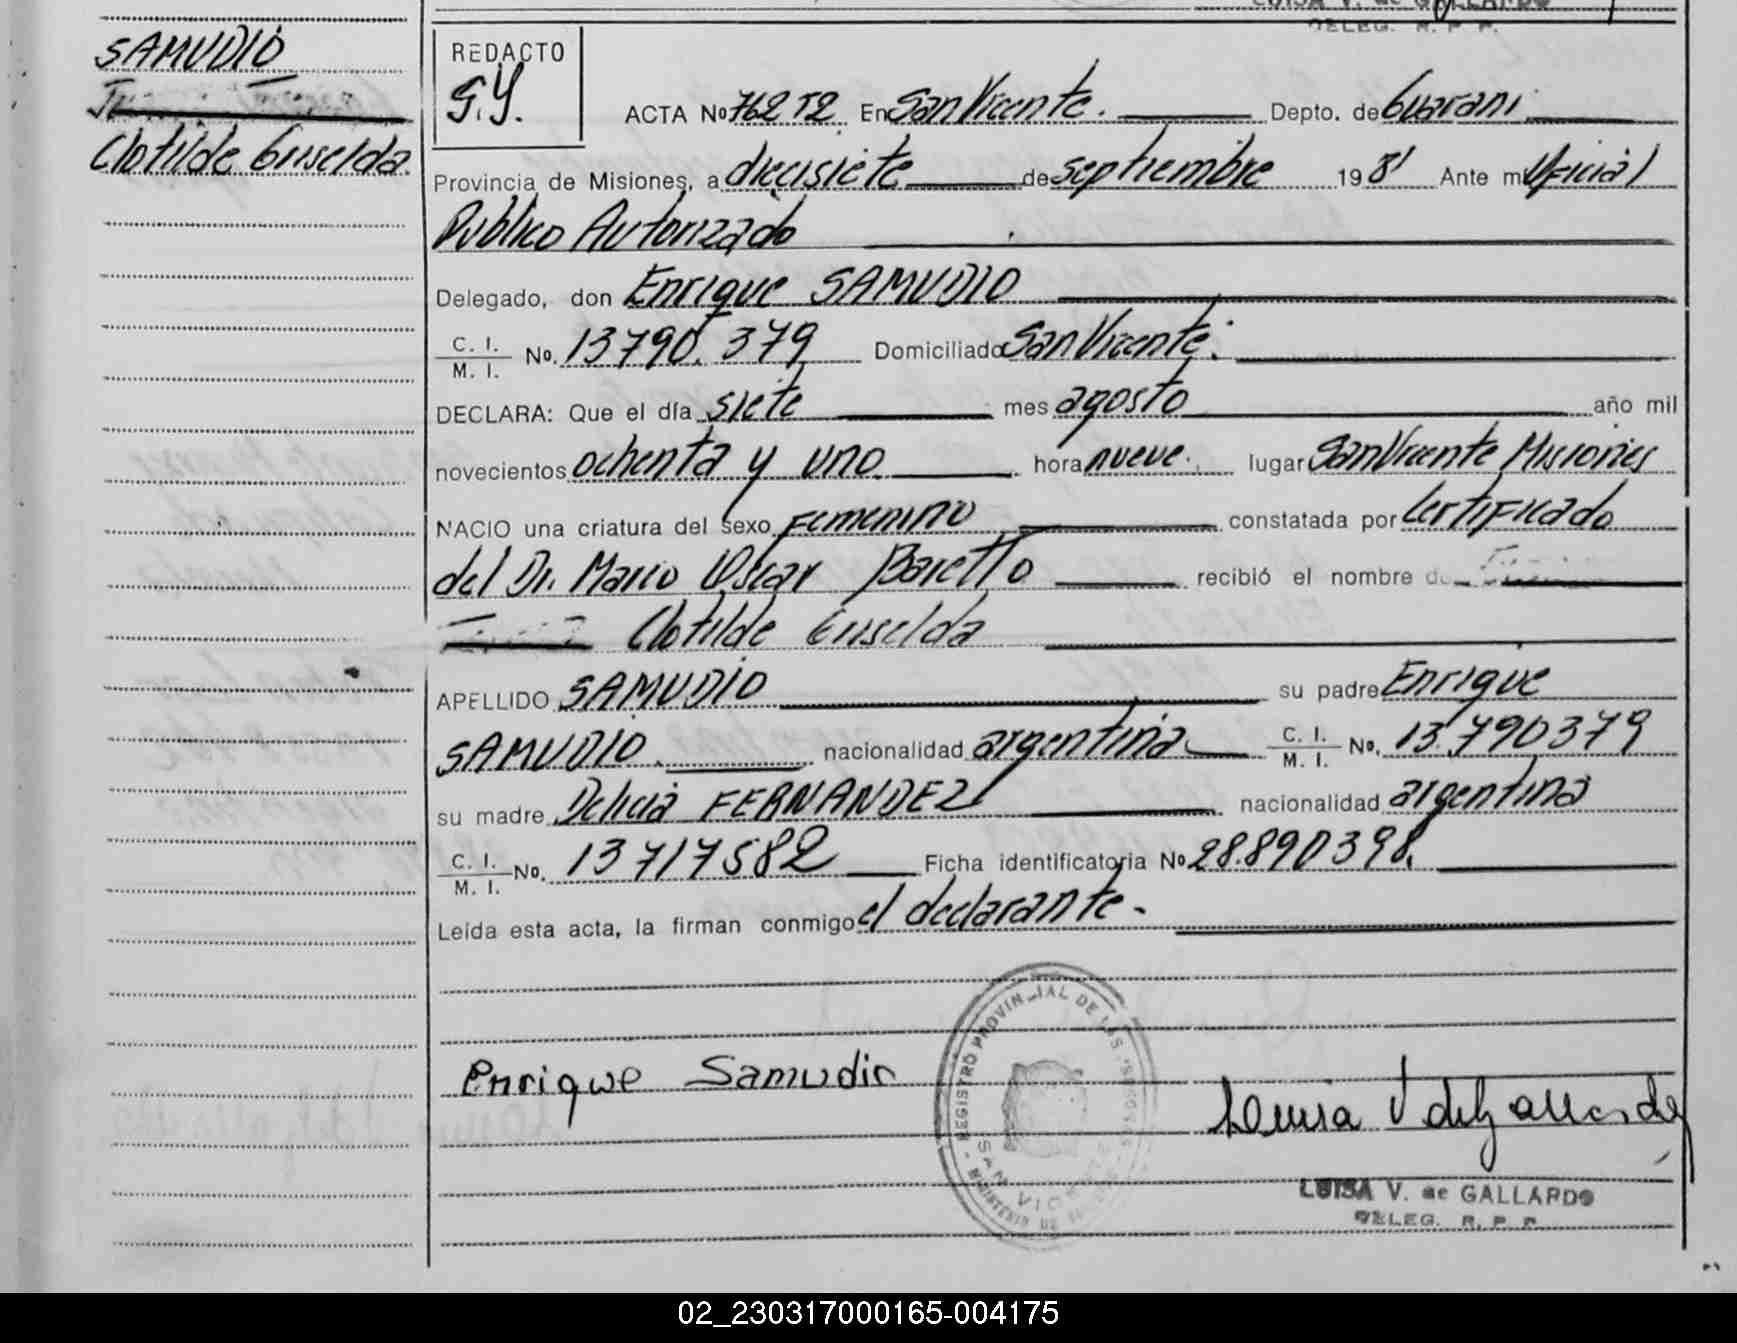 LUISA V. de GALLARDO
DELEG. R. P. P.
SAMUDIO
Clotilde Griselda.
REDACTO
G.Y.
ACTA No 762 T2 En San Vicente. Depto. de Guarani
Provincia de Misiones, a diecisiete de septiembre 1981 Ante mi Oficial
Publico Autorizado
Delegado, don Enrique SAMUDIO
C. I. / M. I. No. 13790.379 Domiciliado San Vicente.
DECLARA: Que el día siete mes agosto año mil
novecientos ochenta y uno hora nueve. lugar San Vicente Misiones
NACIO una criatura del sexo Femenino constatada por Certificado
del Dr. Marco Oscar Baretto recibió el nombre de
Clotilde Griselda
APELLIDO SAMUDIO su padre Enrique
SAMUDIO. nacionalidad argentina C. I. / M. I. No. 13.790379
su madre Delicia FERNANDEZ nacionalidad argentina
C. I. / M. I. No. 13717582 Ficha identificatoria No 28.890398.
Leída esta acta, la firman conmigo el declarante.-
Enrique Samudio
REGISTRO PROVINCIAL DE LAS PERSONAS
SAN VICENTE
MINISTERIO DE
Luisa V de Gallardo
LUISA V. de GALLARDO
DELEG. R. P. P.
02_230317000165-004175